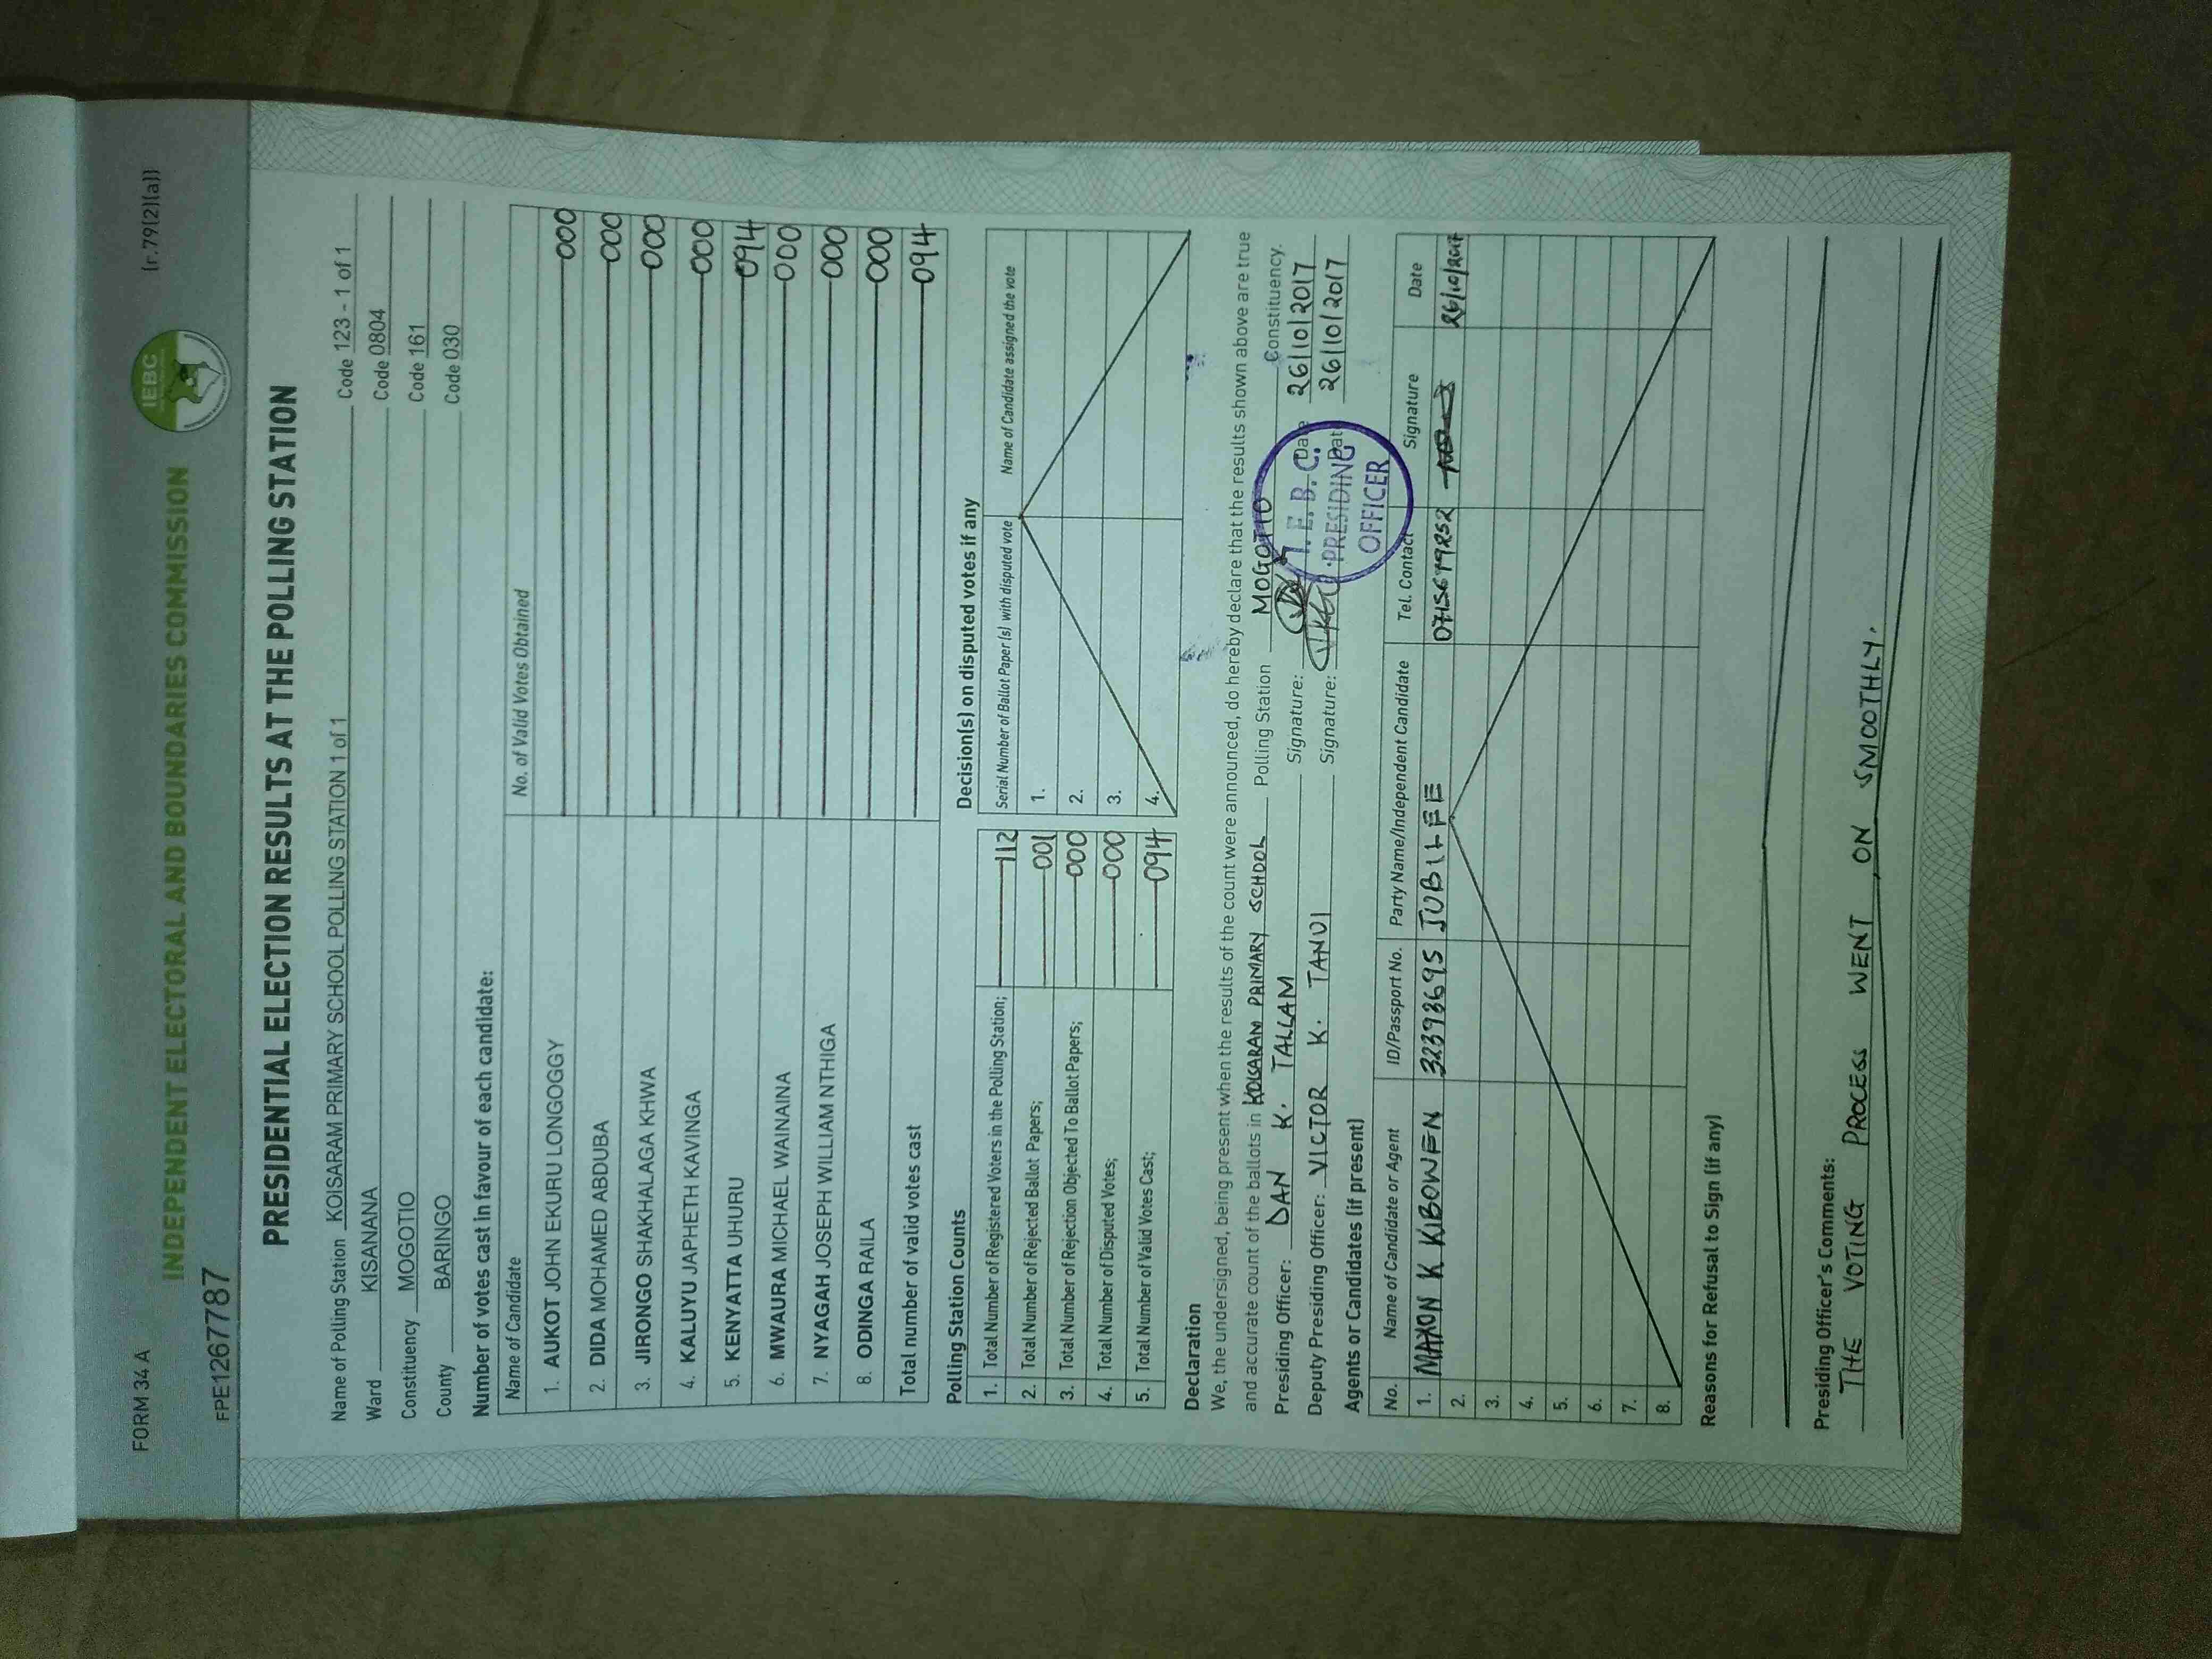 FORM 34 A
(r.79(2)(a))
IEBC
INDEPENDENT ELECTORAL AND BOUNDARIES COMMISSION
FPE12677787
PRESIDENTIAL ELECTION RESULTS AT THE POLLING STATION
Name of Polling Station KOISARAM PRIMARY SCHOOL POLLING STATION 1 of 1 Code 123 - 1 of 1
Ward KISANANA Code 0804
Constituency MOGOTIO Code 161
County BARINGO Code 030
Number of votes cast in favour of each candidate:
Name of Candidate No. of Valid Votes Obtained
1. AUKOT JOHN EKURU LONGOGGY 000
2. DIDA MOHAMED ABDUBA 000
3. JIRONGO SHAKHALAGA KHWA 000
4. KALUYU JAPHETH KAVINGA 000
5. KENYATTA UHURU 094
6. MWAURA MICHAEL WAINAINA 000
7. NYAGAH JOSEPH WILLIAM NTHIGA 000
8. ODINGA RAILA 000
Total number of valid votes cast 094
Polling Station Counts
1. Total Number of Registered Voters in the Polling Station; 112
2. Total Number of Rejected Ballot Papers; 001
3. Total Number of Rejection Objected To Ballot Papers; 000
4. Total Number of Disputed Votes; 000
5. Total Number of Valid Votes Cast; 094
Decision(s) on disputed votes if any
Serial Number of Ballot Paper (s) with disputed vote Name of Candidate assigned the vote
1.
2.
3.
4.
Declaration
We, the undersigned, being present when the results of the count were announced, do hereby declare that the results shown above are true
and accurate count of the ballots in KOISARAM PRIMARY SCHOOL Polling Station MOGOTIO Constituency.
Presiding Officer: DAN K. TALLAM Signature: Date 26/10/2017
Deputy Presiding Officer: VICTOR K. TANUI Signature: Dat 26/10/2017
I.E.B.C.
PRESIDING
OFFICER
Agents or Candidates (if present)
No. Name of Candidate or Agent ID/Passport No. Party Name/Independent Candidate Tel. Contact Signature Date
1. MAXON K KIBOWEN 32393695 JUBILEE 0715679252 26/10/2017
2.
3.
4.
5.
6.
7.
8.
Reasons for Refusal to Sign (if any)
Presiding Officer's Comments:
THE VOTING PROCESS WENT ON SMOOTHLY.